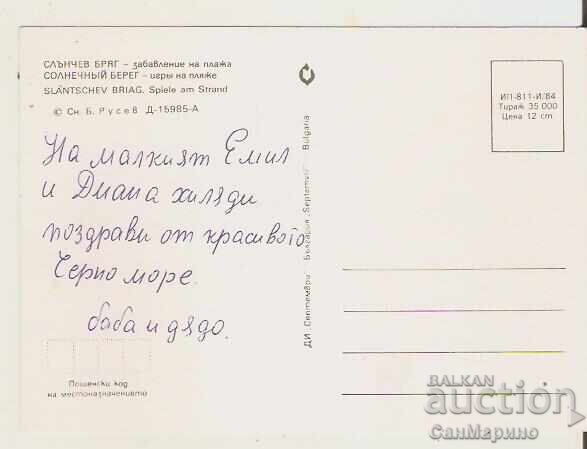 СЛЪНЧЕВ БРЯГ – забавление на плажа
СОЛНЕЧНЫЙ БЕРЕГ – игры на пляже
SLÂNTSCHEV BRIAG. Spiele am Strand
© Сн. Б. Русев Д-15985-А
На малкият Емил
и Диана хиляди
поздрави от красивото
Черно море.
баба и дядо.
Пощенски код
на местоназначението
ДИ „Септември" България „Septemvri" Bulgaria
ИП-811-И/84
Тираж 35 000
Цена 12 ст.
BALKAN
auction
СанМарино